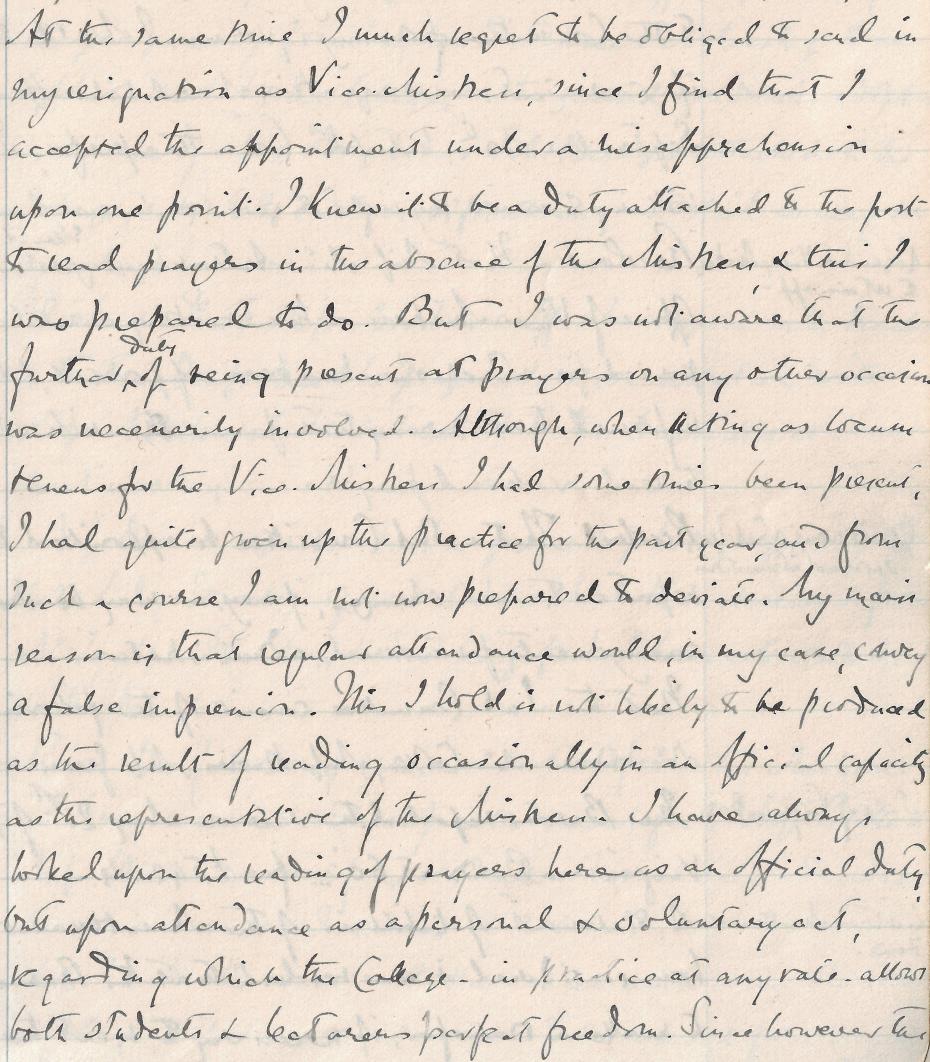 At the same time I much regret to be obliged to send in
my resignation as Vice-Mistress, since I find that I
accepted the appointment under a misapprehension
upon one point. I knew it to be a duty attached to the post
to read prayers in the absence of the Mistress, & this I
was prepared to do. But I was not aware that the
further duty of being present at prayers on any other occasion
was necessarily involved. Although, when acting as locum
tenens for the Vice-Mistress I had sometimes been present,
I had quite given up the practice for the past year, and from
such a course I am not now prepared to deviate. My main
reason is that regular attendance would, in my case, convey
a false impression. This I hold is not likely to be produced
as the result of reading occasionally in an official capacity
as the representative of the Mistress. I have always
looked upon the reading of prayers here as an official duty,
but upon attendance as a personal & voluntary act,
regarding which the College - in practice at any rate - allows
both students & lecturers perfect freedom. Since however the